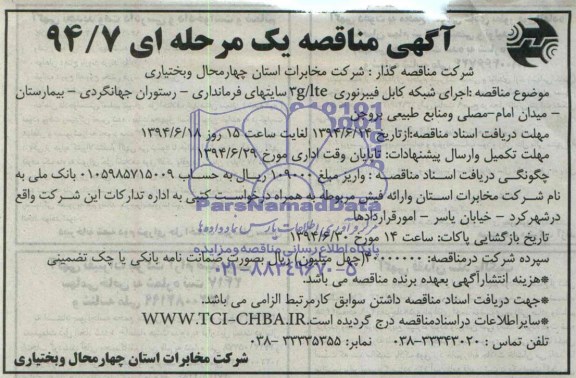 آگهی مناقصه یک مرحله ای ۹۴/۷
شرکت مناقصه گذار : شرکت مخابرات استان چهارمحال وبختیاری
موضوع مناقصه :اجرای شبکه کابل فیبرنوری ۳g/lte سایتهای فرمانداری – رستوران جهانگردی – بیمارستان
– میدان امام-مصلی ومنابع طبیعی بروجن
مهلت دریافت اسناد مناقصه:ازتاریخ ۱۳۹۴/۶/۱۴ لغایت ساعت ۱۵ روز ۱۳۹۴/۶/۱۸
مهلت تکمیل وارسال پیشنهادات: تاپایان وقت اداری مورخ ۱۳۹۴/۶/۲۹
چگونگی دریافت اسناد مناقصه : واریز مبلغ ۱۰۹۰۰۰ ریال به حساب ۰۱۰۵۹۸۵۷۱۵۰۰۹ بانک ملی به
نام شرکت مخابرات استان وارائه فیش مربوطه به همراه درخواست کتبی به اداره تدارکات این شرکت واقع
درشهرکرد – خیابان یاسر – امورقراردادها.
تاریخ بازگشایی پاکات: ساعت ۱۴ مورخ ۱۳۹۴/۶/۳۰
سپرده شرکت درمناقصه: ۴۰۰۰۰۰۰۰(چهل میلیون) ریال بصورت ضمانت نامه بانکی یا چک تضمینی
*هزینه انتشارآگهی بعهده برنده مناقصه می باشد.
*جهت دریافت اسناد مناقصه داشتن سوابق کارمرتبط الزامی می باشد.
*سایراطلاعات دراسنادمناقصه درج گردیده است.WWW.TCI-CHBA.IR
تلفن تماس : ۳۳۳۴۳۰۲۰-۰۳۸ نمابر: ۳۳۳۳۵۳۵۵ -۰۳۸
شرکت مخابرات استان چهارمحال وبختیاری
ParsNamadData
پایگاه اطلاع رسانی مناقصه ومزایده
۰۲۱-۸۸۳۴۹۶۷۰-۵